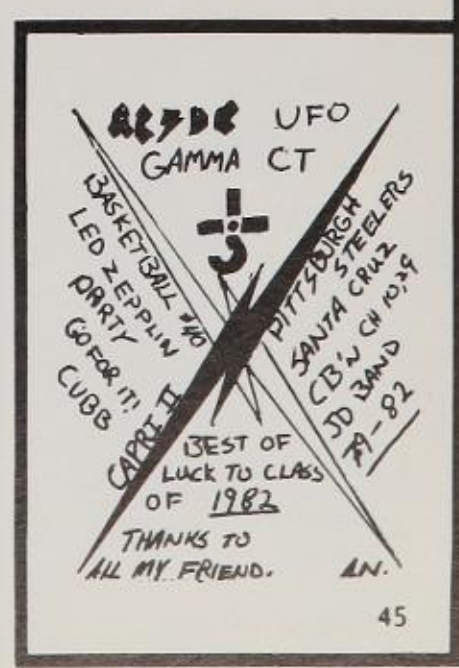 AC⚡DC UFO
GAMMA CT
BASKETBALL #40
LED ZEPPLIN
PARTY
GO FOR IT!
CUBB
CAPRI II
PITTSBURGH
STEELERS
SANTA CRUZ
CB'N CH 10,29
JD BAND
79-82
BEST OF
LUCK TO CLASS
OF 1982
THANKS TO
ALL MY FRIEND. AN.
45